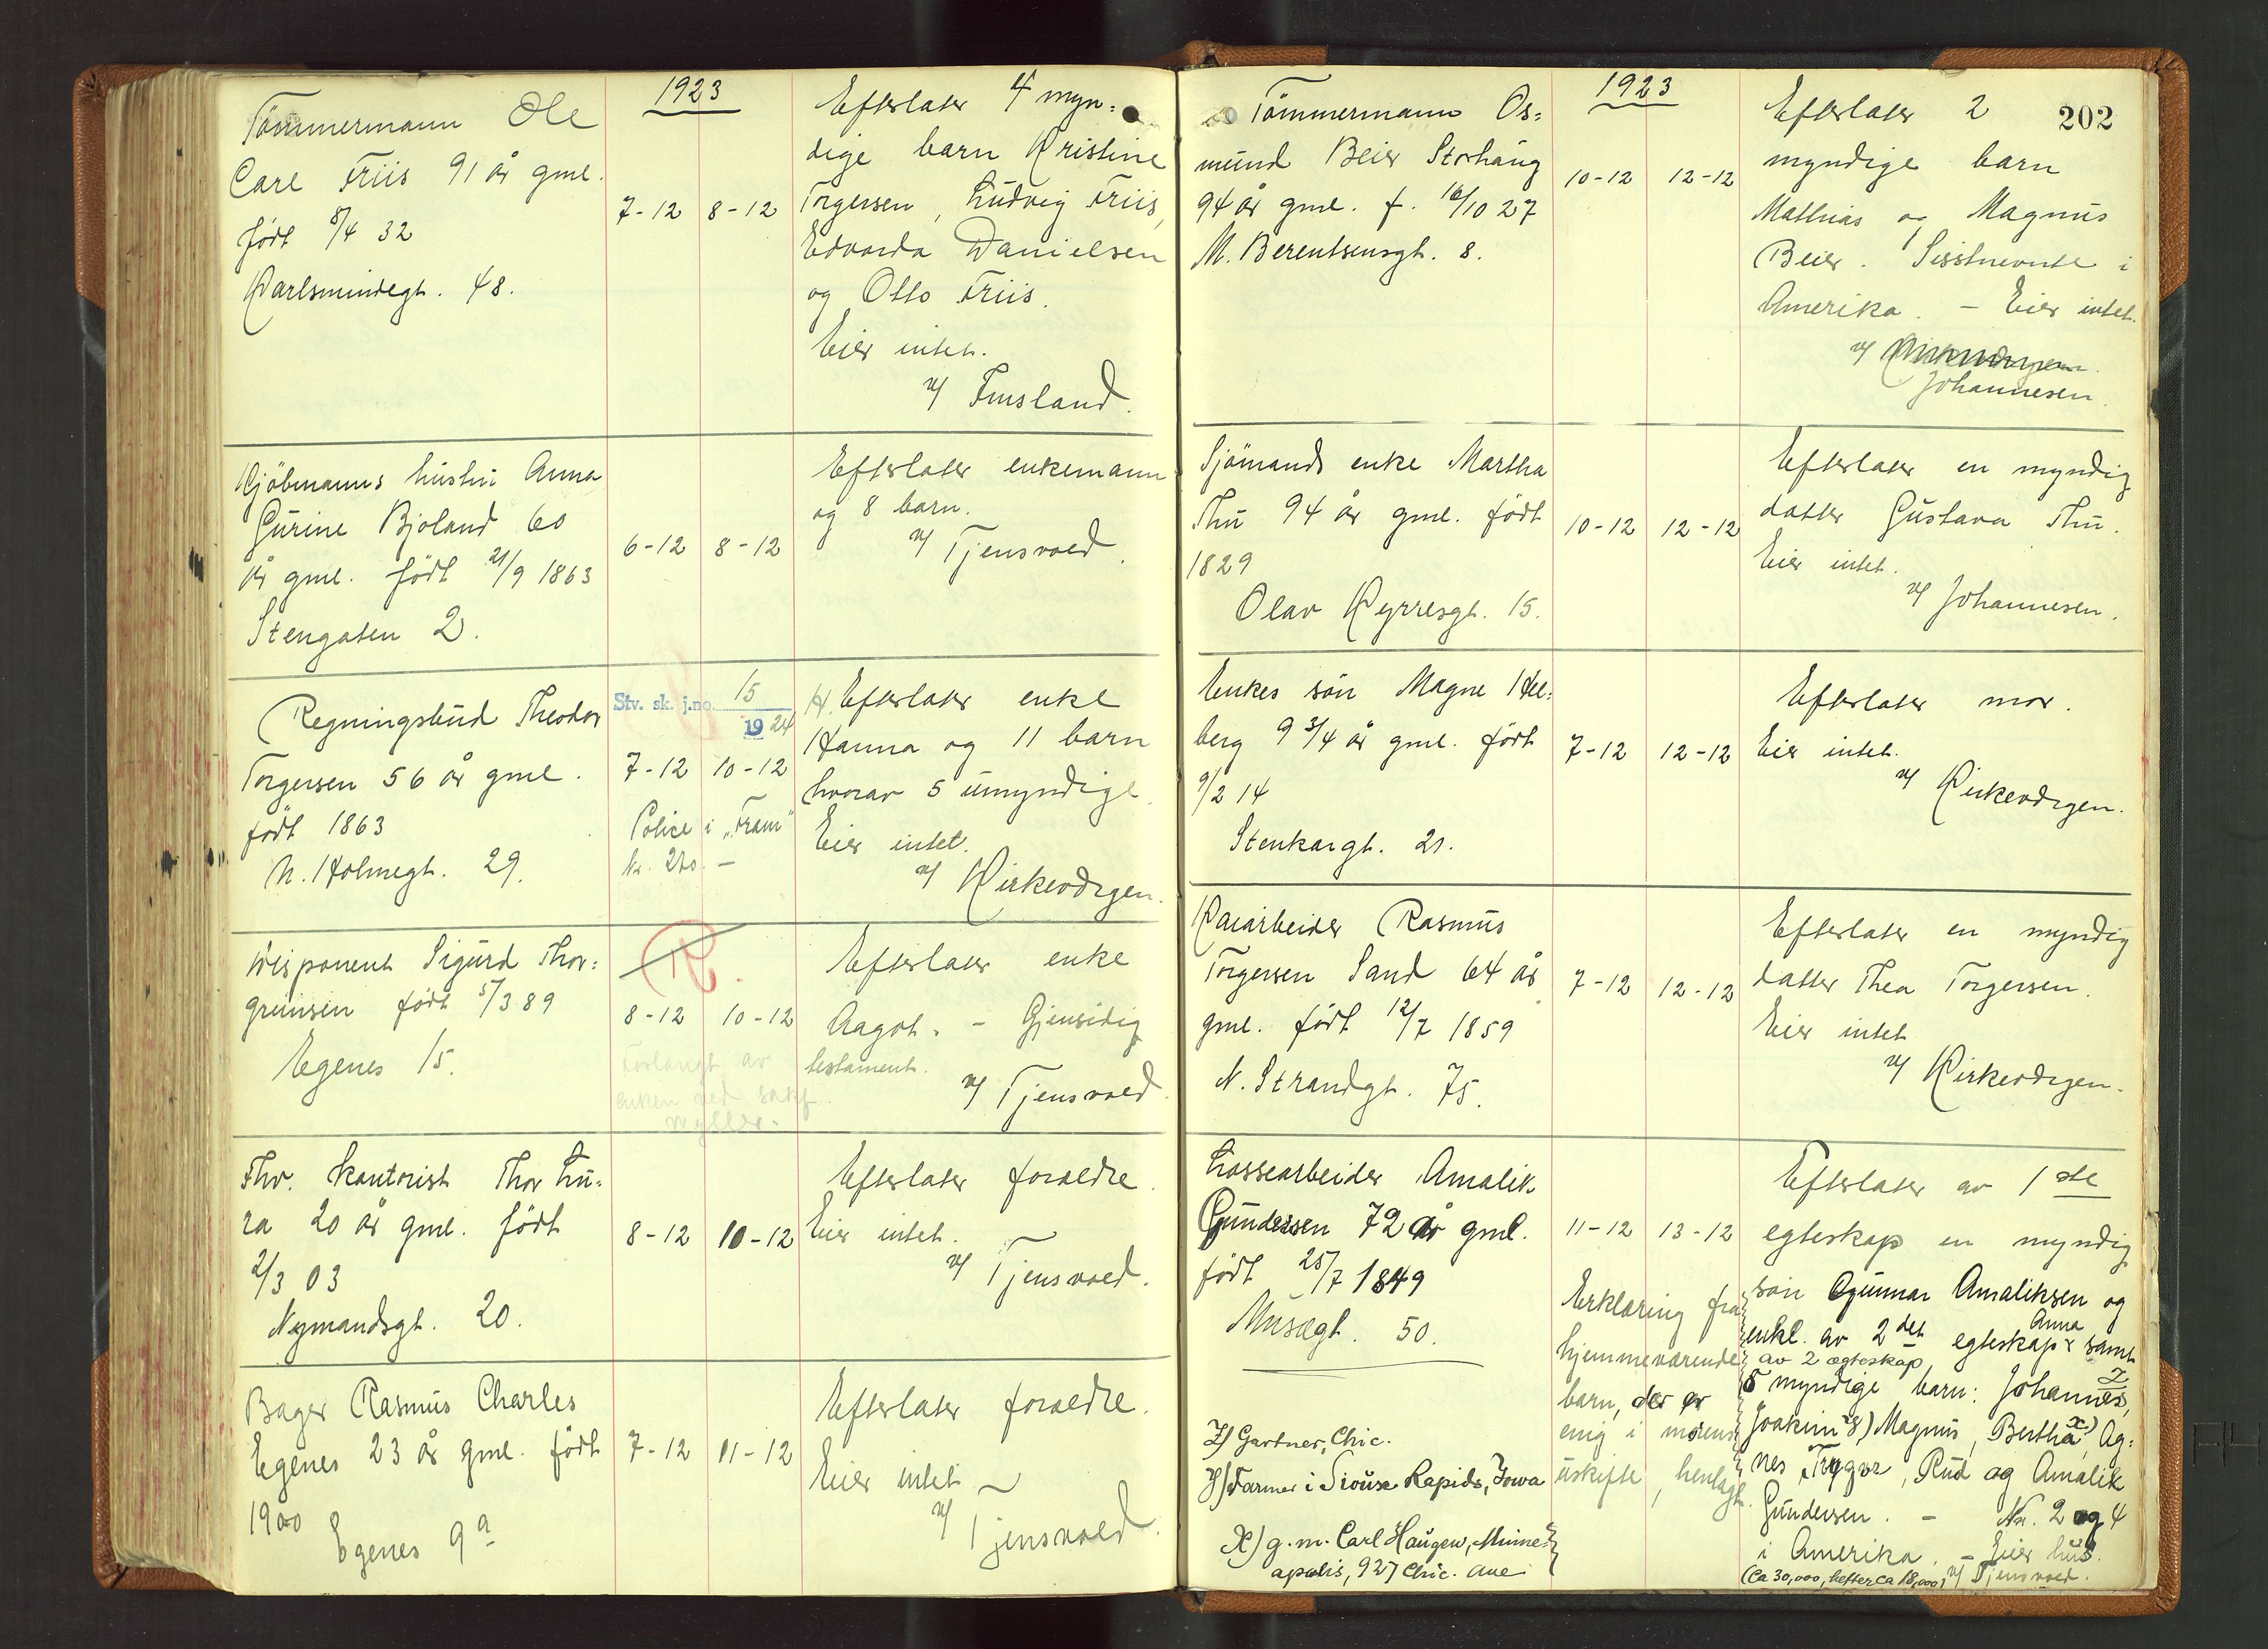 1923
Tömmermann Ole
Carl Friis 91 år gml.
född 8/4 32
Karlsmindegt. 48.
7-12 8-12
Efterlater 4 myn=
dige barn Kristine
Torgersen, Ludvig Friis,
Edvarda Danielsen
og Otto Friis.
Eier intet.
v/ Finsland.
Kjöbmanns hustru Anna
Gurine Bjoland 60
år gml. född 21/9 1863
Stengaten 2.
6-12 8-12
Efterlater enkemann
og 8 barn.
v/ Tjensvold.
Regningsbud Theodor
Torgersen 56 år gml.
född 1863
N. Holmegt. 29.
Stv. sk. j.no. 15
1924
7-12 10-12
Police i "Fram"
Kr. 210.-
Efterlater enke
Hanna og 11 barn
hvorav 5 umyndige.
Eier intet.
v/ Kirkeorgen.
Disponent Sigurd Thor=
grimsen född 5/3 89
Egenes 15.
R.
8-12 10-12
Forlangt av
enken ved sakf.
Efterlater enke
Aagot. - Gjensidig
testament.
v/ Tjensvold.
Fhv. kontorist Thor Lu=
ra 20 år gml. född
2/3 03
Nymandsgt. 20.
8-12 10-12
Efterlater foraldre.
Eier intet.
v/ Tjensvold.
Bager Rasmus Charles
Egenes 23 år gml. född
1900
Egenes 9a
7-12 11-12
Efterlater foraldre.
Eier intet
v/ Tjensvold.
1923
202
Tömmermann Os=
mund Beier Storhaug
94 år gml. f. 16/10 27
M. Berentsensgt. 8.
10-12 12-12
Efterlater 2
myndige barn
Mathias og Magnus
Beier. Sisstnevnte i
Amerika. - Eier intet.
v/ Kirkeorgen
Johannesen.
Sjömands enke Martha
Thu 94 år gml. född
1829
Olav Kyrresgt. 15.
10-12 12-12
Efterlater en myndig
datter Gustava Thu.
Eier intet.
v/ Johannesen.
Enkes sön Magne Hel=
berg 9 3/4 år gml. född
9/2 14
Stenkargt. 21.
7-12 12-12
Efterlater mor.
Eier intet.
v/ Kirkeorgen.
Kaiarbeider Rasmus
Torgersen Sand 64 år
gml. född 12/7 1859
N. Strandgt. 75.
7-12 12-12
Efterlater en myndig
datter Thea Torgersen.
Eier intet
v/ Kirkeorgen.
Lossearbeider Amalik
Gundersen 72 år gml.
född 25/7 1849
Musægt. 50.
11-12 13-12
Erklæring fra
hjemmeværende
barn, der er
enig i morens
uskifte, henlagt.
Z) Gartner, Chic.
Y) Farmer i Sioux Rapids, Iowa
X) g.m. Carl Haugen, Minne=
apolis, 927 Chic. ave
Efterlater av 1ste
egteskap en myndig
sön Gunnar Amaliksen og
enke av 2det egteskap Anna samt
av 2 ægteskap
8 myndige barn: Johannes, Z
Joakim Y) Magnus, Bertha X), Ag=
nes, Trygve, Rud og Amalik
Gundersen. - Nr. 2 og 4
i Amerika. Eier hus.
(Ca 30,000, hefter ca 18,000) v/ Tjensvold.